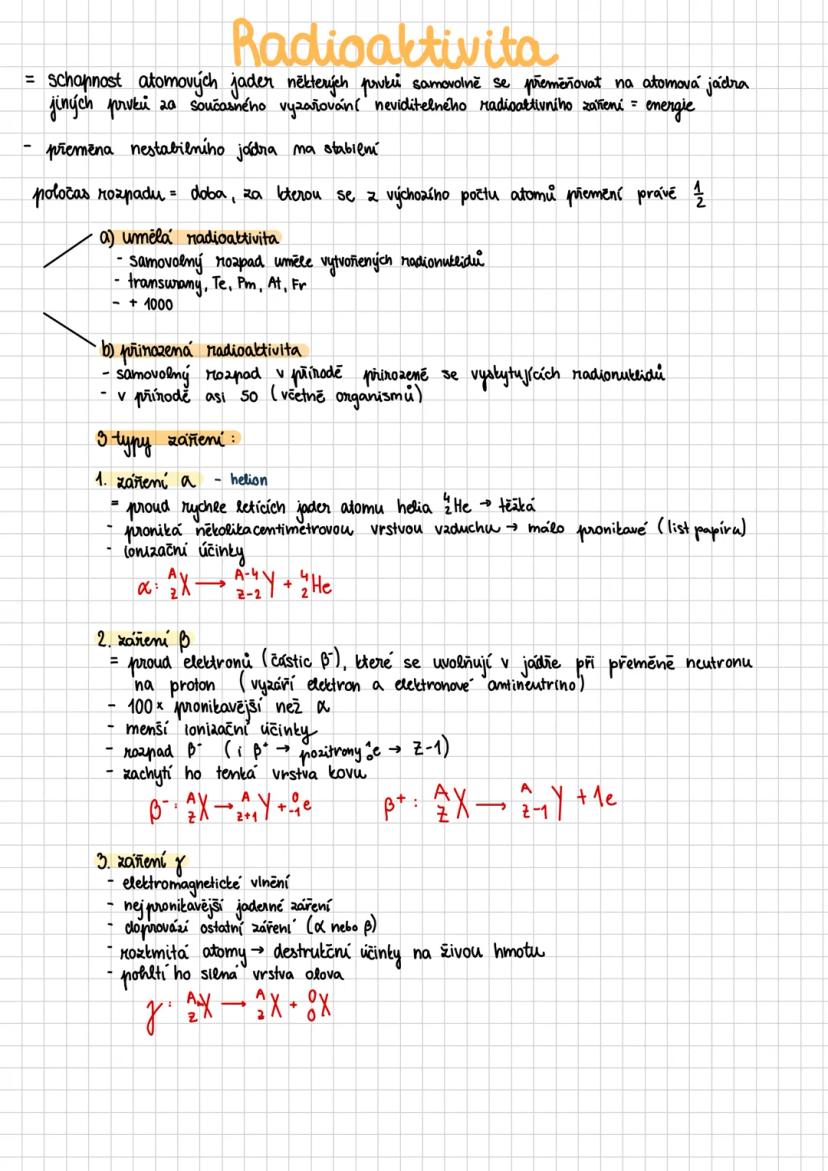 Radioaktivita
= schopnost atomových jader některých prvků samovolně se přeměňovat na atomová jádra
jiných prvků za současného vyzařování neviditelného radioaktivního záření = energie
- přeměna nestabilního jádra na stabilní
poločas rozpadu = doba, za kterou se z výchozího počtu atomů přemění právě 1/2
a) umělá radioaktivita
- samovolný rozpad uměle vytvořených radionuklidů
- transurany, Te, Pm, At, Fr
- + 1000
b) přirozená radioaktivita
- samovolný rozpad v přírodě přirozeně se vyskytujících radionuklidů
- v přírodě asi 50 (včetně organismů)
3 typy záření:
1. záření α - helion
= proud rychle letících jader atomu helia ⁴₂He → těžká
- proniká několikacentimetrovou vrstvou vzduchu → málo pronikavé (list papíru)
- ionizační účinky
α: ᴬ_Z X → ᴬ⁻⁴_Z-2 Y + ⁴₂He
2. záření β
= proud elektronů (částic β⁻), které se uvolňují v jádře při přeměně neutronu
na proton (vyzáří elektron a elektronové antineutrino)
- 100× pronikavější než α
- menší ionizační účinky
- rozpad β⁻ (i β⁺ → pozitrony e → Z-1)
- zachytí ho tenká vrstva kovu
β⁻: ᴬ_Z X → ᴬ_Z+1 Y + ⁰₋₁e β⁺: ᴬ_Z X → ᴬ_Z-1 Y + 1e
3. záření γ
- elektromagnetické vlnění
- nejpronikavější jaderné záření
- doprovází ostatní záření (α nebo β)
- rozkmitá atomy → destrukční účinky na živou hmotu
- pohltí ho silná vrstva olova
γ: ᴬ_Z X → ᴬ_Z X + ⁰₀X